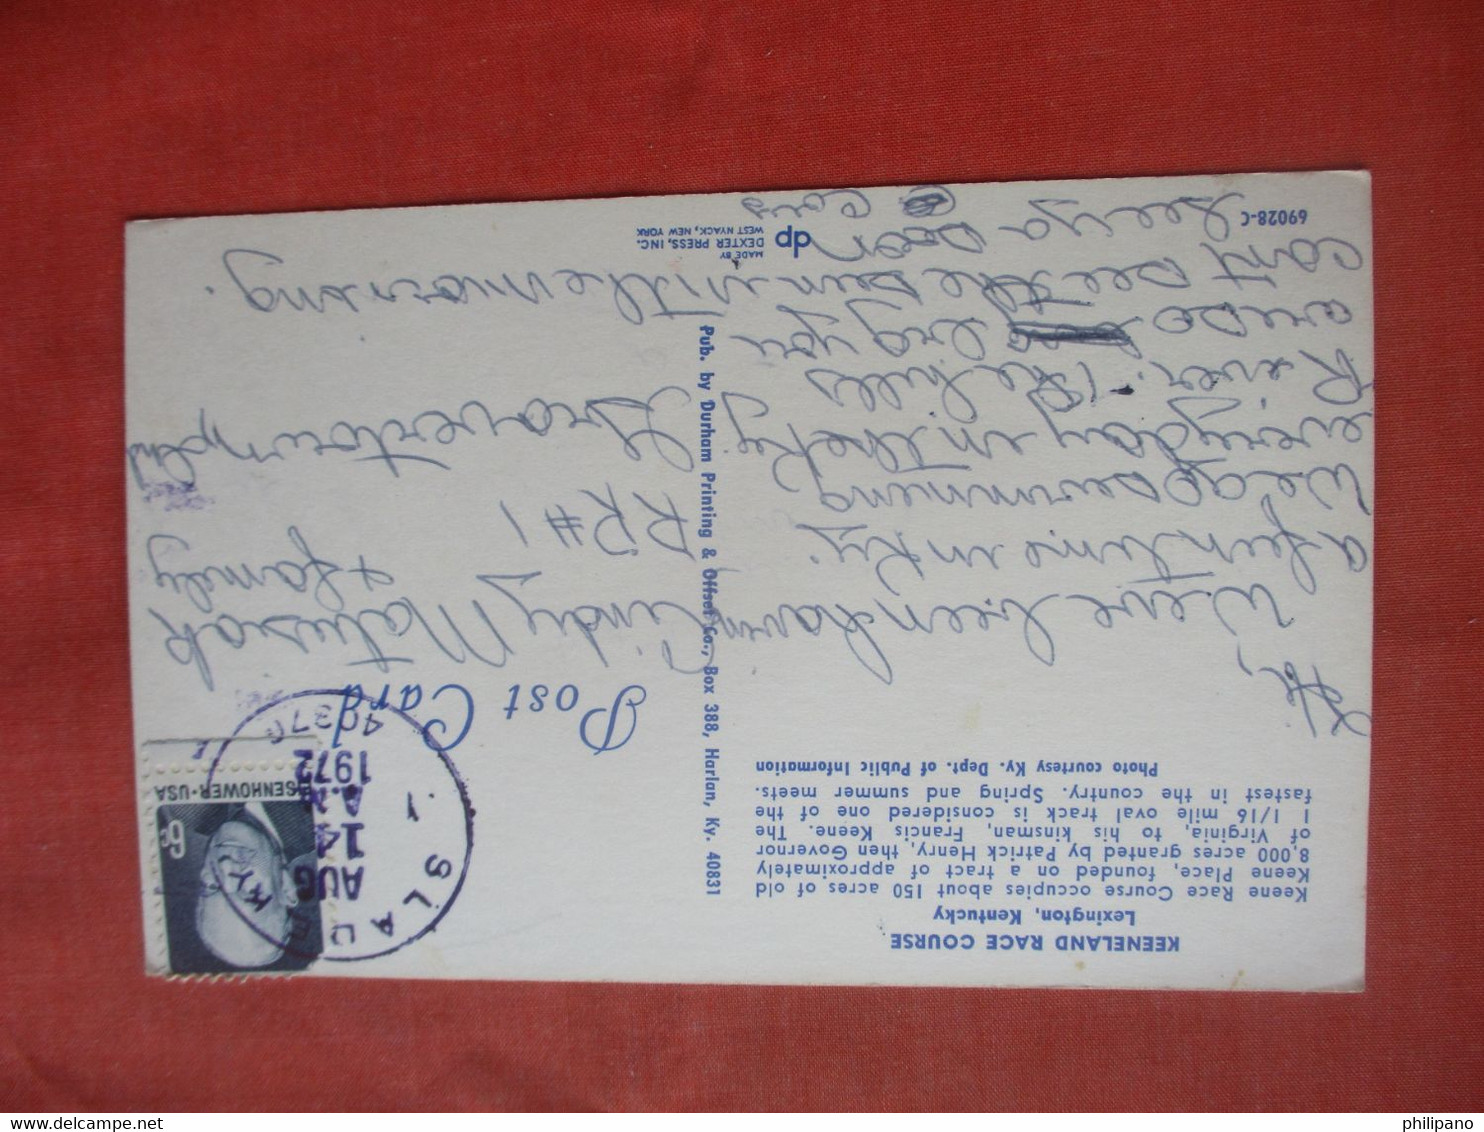 KEENELAND RACE COURSE
Lexington, Kentucky
Keene Race Course occupies about 150 acres of old
Keene Place, founded on a tract of approximately
8,000 acres granted by Patrick Henry, then Governor
of Virginia, to his kinsman, Francis Keene. The
1 1/16 mile oval track is considered one of the
fastest in the country. Spring and summer meets.
Photo courtesy Ky. Dept. of Public Information
Hi,
We've been havin
a fun time in Ky.
We go swimming
everyday in the Ky
River. The hills
are so big you
can't see the sun in the morning.
See ya soon
69028-C
Pub. by Durham Printing & Offset Co., Box 388, Harlan, Ky. 40831
MADE BY
dp DEXTER PRESS, INC.
WEST NYACK, NEW YORK
Post Card
SLADE
KY
AUG
14
A.M
1972
40376
6c
EISENHOWER·USA
Cindy Matusak
+ family
RR#1
Gravertown
www.delcampe.net
philipano